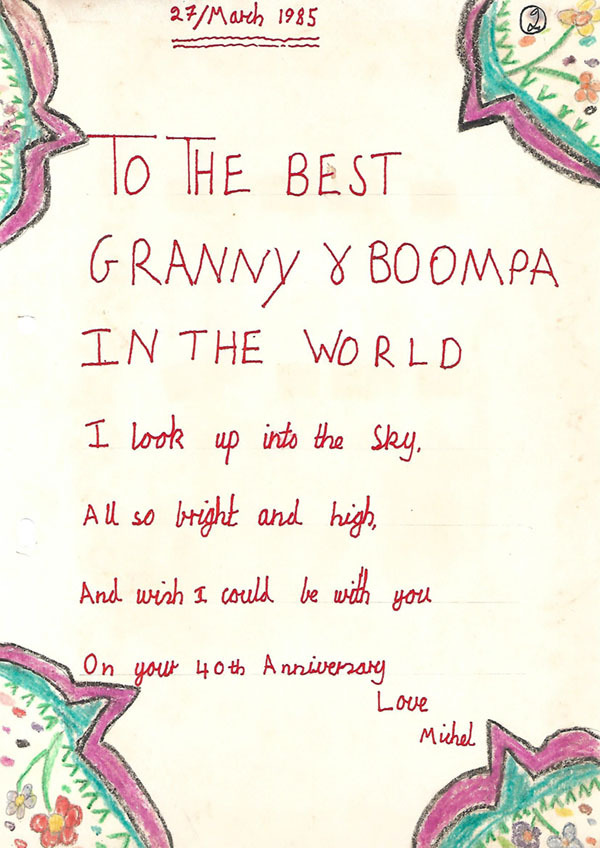 27/March 1985
2
TO THE BEST
GRANNY & BOOMPA
IN THE WORLD
I look up into the sky,
All so bright and high,
And wish I could be with you
On your 40th Anniversary
Love
Michel